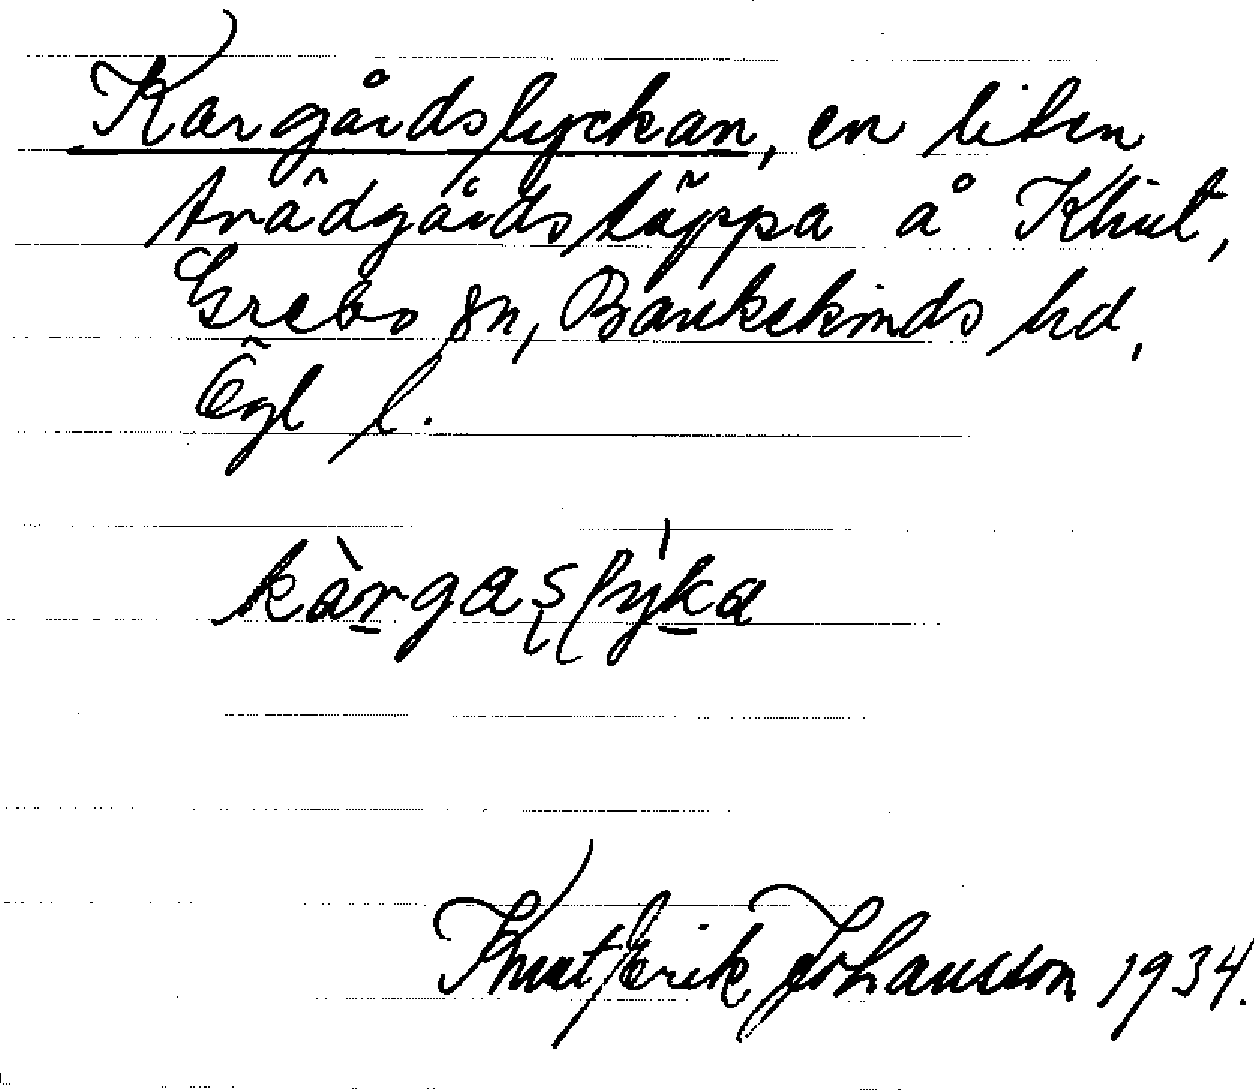 Kargårdslyckan, en liten
trädgårdstäppa å Klint,
Grebo sn, Bankekinds hd,
Ögl l.
kàrgaslýka
Knut Erik Johansson 1934.